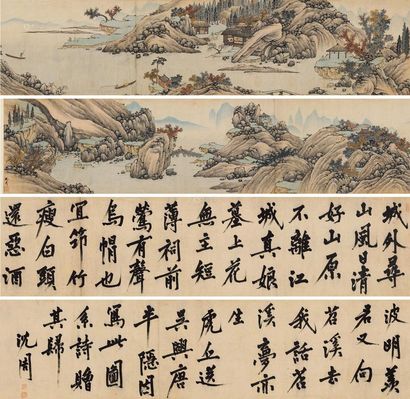 城外尋
山風日清
好山原
不離江
城真娘
墓上花
無主短
薄祠前
鶯有聲
烏帽也
宜筇竹
瘦白頭
還惡酒
波明羨
君又向
苕溪去
我話苕
溪夢亦
生
虎丘送
吳興唐
半隱因
寫此圖
系詩贈
其歸
沈周